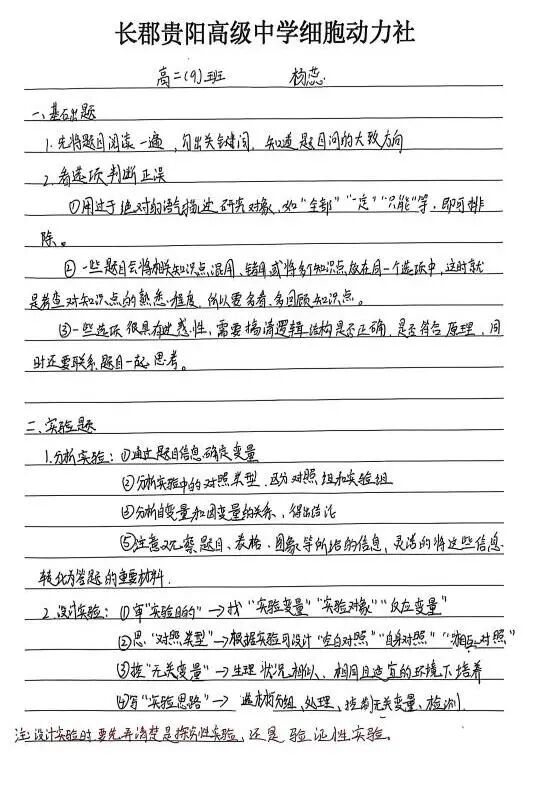 长郡贵阳高级中学细胞动力社
高二(9)班 杨蕊
一、基础题
1.先将题目阅读一遍,勾出关键词,知道题目问的大致方向
2.看选项判断正误
①用过于绝对的语气描述研究对象,如“全部”“一定”“只能”等,即可排
除。
②一些题目会将相关知识点混用、错用或将多个知识点放在同一个选项中,这时就
是考查对知识点的熟悉程度,所以要多看,多回顾知识点。
③一些选项很具有迷惑性,需要搞清逻辑结构是否正确,是否符合原理,同
时还要联系题目一起思考。
二、实验题
1.分析实验:①通过题目信息确定变量
②分析实验中的对照类型,区分对照组和实验组
③分析自变量和因变量的关系,得出结论
⑤注意观察题目、表格、图象等所给的信息,灵活的将这些信息
转化为答题的重要材料.
2.设计实验:①审“实验目的”→找“实验变量”“实验对象”“反应变量”
②思“对照类型”→根据实验可设计“空白对照”“自身对照”“相互对照”
③控“无关变量”→生理状况相似、相同且适宜的环境下培养
④写“实验思路”→选材分组、处理、控制无关变量、检测.
注:设计实验时要先弄清楚是探究性实验,还是验证性实验。